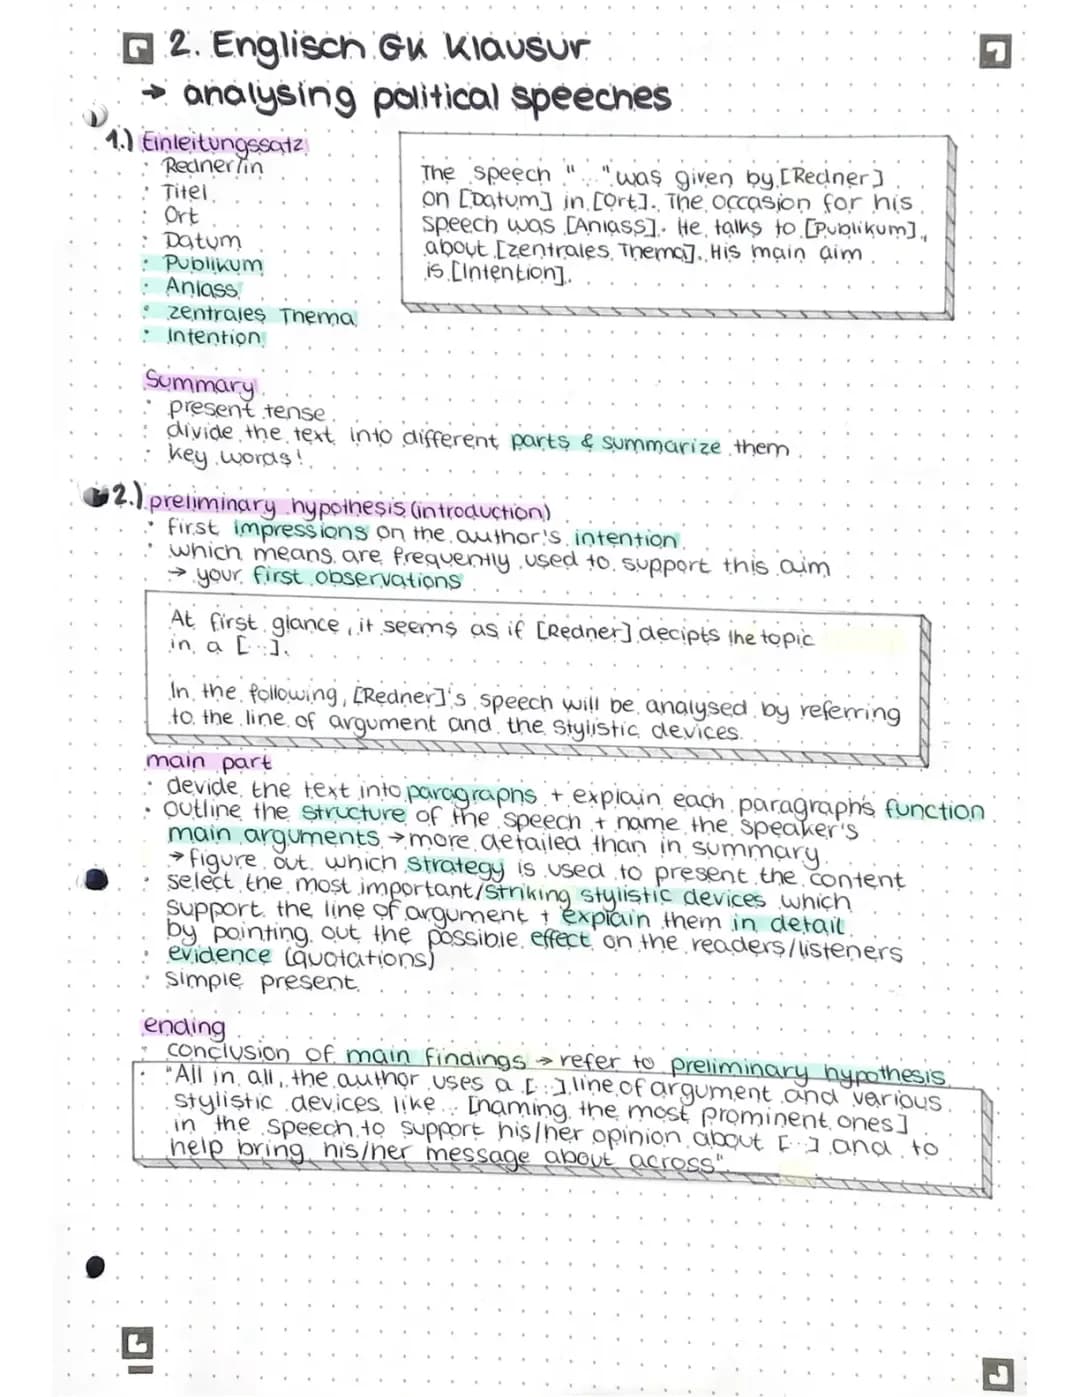 2. Englisch GK Klausur
→ analysing political speeches
1.) Einleitungssatz
· Redner/in
· Titel
· Ort
· Datum
· Publikum
· Anlass
· zentrales Thema
· Intention
The speech "..." was given by [Redner]
on [Datum] in [Ort]. The occasion for his
speech was [Anlass]. He talks to [Publikum],
about [zentrales Thema]. His main aim
is [Intention].
Summary
· present tense
· divide the text into different parts & summarize them
· key words!
2.) preliminary hypothesis (introduction)
· first impressions on the author's intention
· which means are frequently used to support this aim
→ your first observations
At first glance, it seems as if [Redner] decipts the topic
in a [...].
In the following, [Redner]'s speech will be analysed by referring
to the line of argument and the stylistic devices.
main part
· devide the text into paragraphs + explain each paragraph's function
· outline the structure of the speech + name the speaker's
main arguments → more detailed than in summary
→ figure out which strategy is used to present the content
· select the most important/striking stylistic devices which
support the line of argument + explain them in detail
by pointing out the possible effect on the readers/listeners
· evidence (quotations)
· simple present
ending
· conclusion of main findings → refer to preliminary hypothesis
· "All in all, the author uses a [...] line of argument and various
stylistic devices like... [naming the most prominent ones]
in the speech to support his/her opinion about [...] and to
help bring his/her message about across"